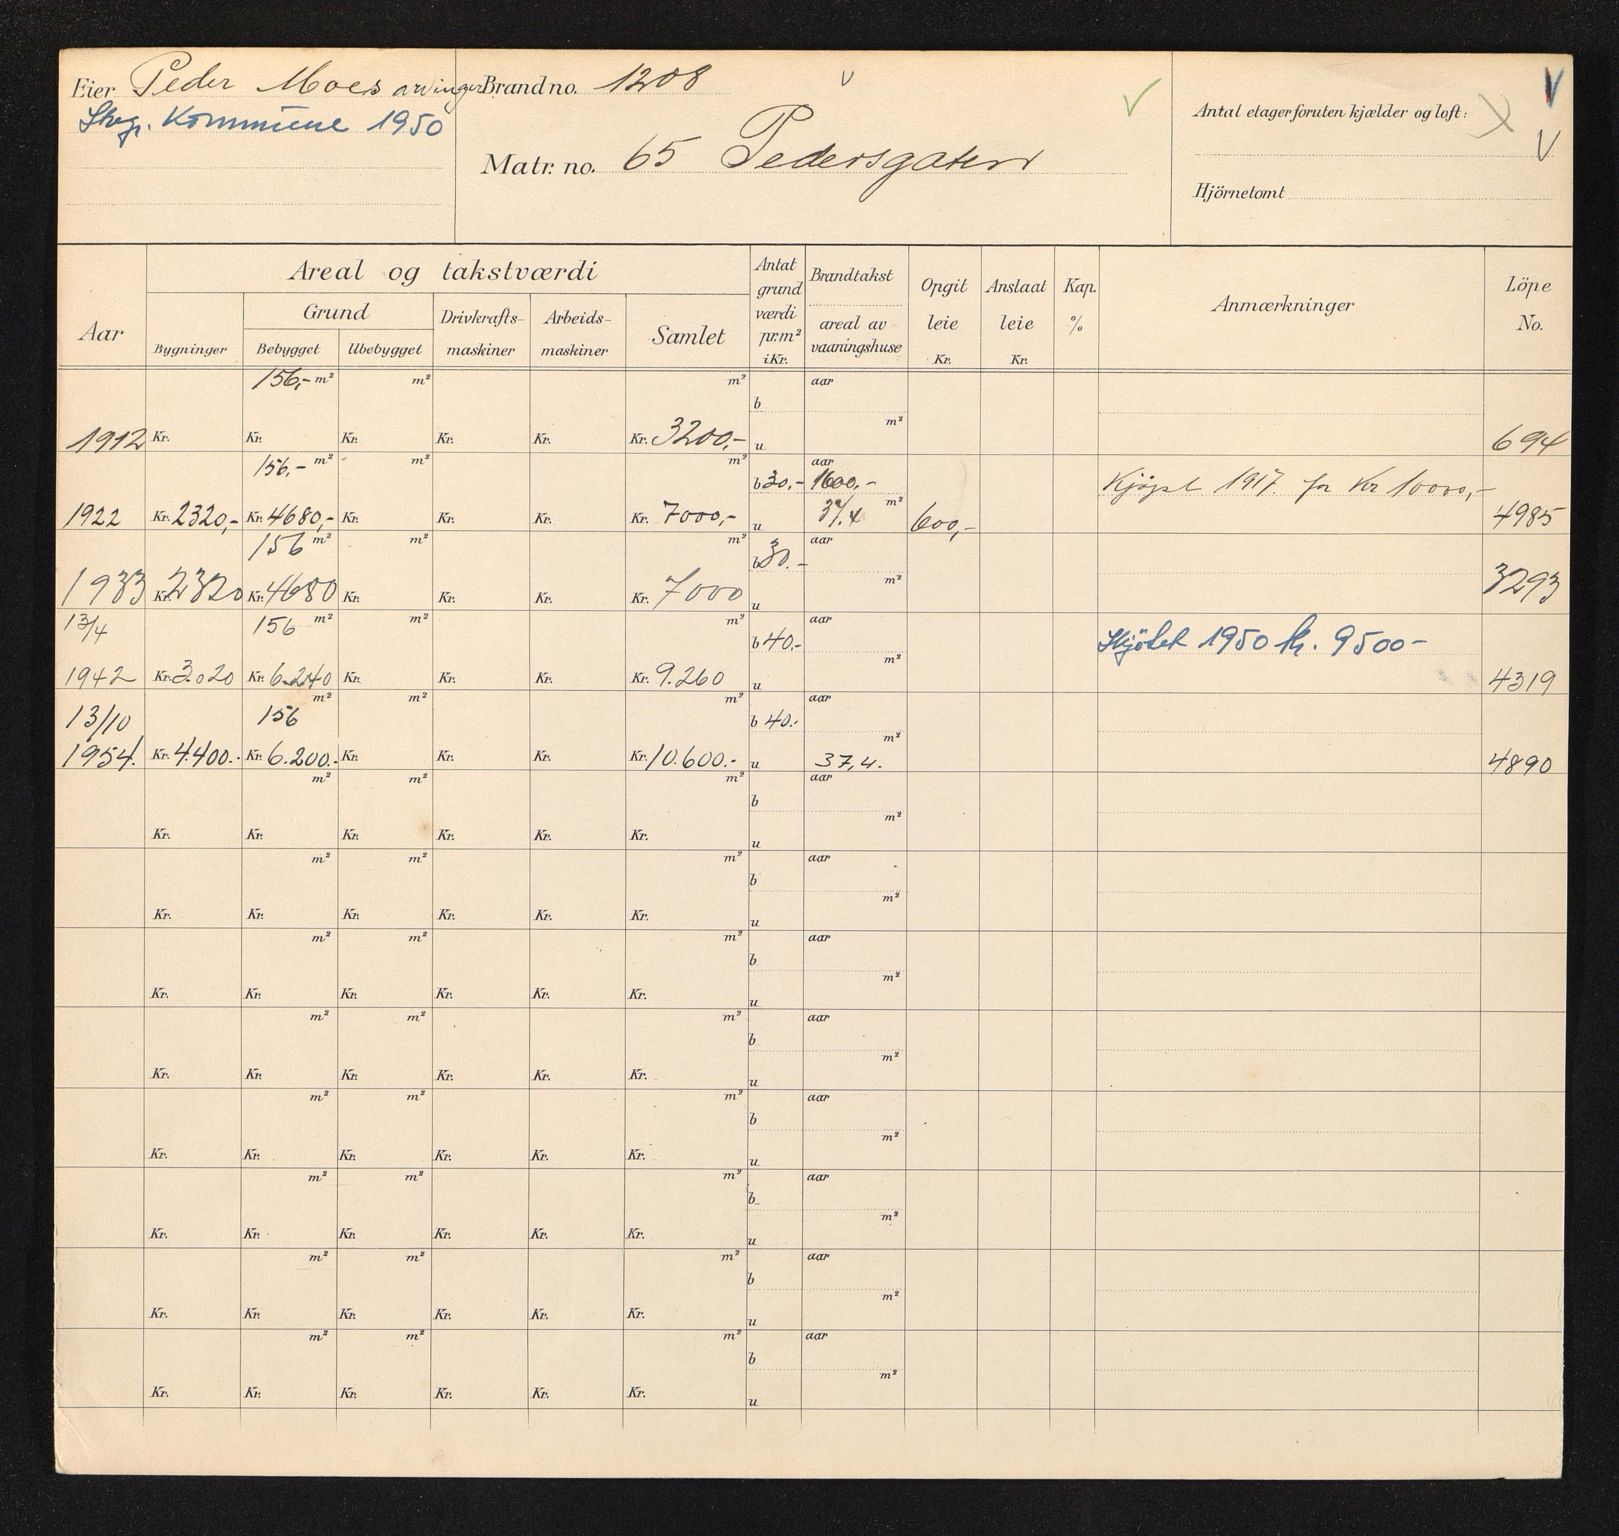 Eier Peder Moes arvinger
Stvgr. Kommune 1950
Brandno. 1208
Matr. no. 65 Pedersgaten
Antal etager foruten kjælder og loft:
Hjörnetomt
Aar
Areal og takstværdi
Grund
Bygninger
Bebygget
Ubebygget
Drivkrafts-
maskiner
Arbeids-
maskiner
Samlet
Antat
grund
værdi
pr.m²
i Kr.
Brandtakst
areal av
vaaningshuse
Opgit
leie
Kr.
Anslaat
leie
Kr.
Kap.
%
Anmærkninger
Löpe
No.
156,- m² m² m² aar
b
m²
1912 Kr. Kr. Kr. Kr. Kr. Kr. 3200,- u 694
156,- m² m² m² aar
b 30,- 1600,- Kjøpt 1917 for Kr 10000,-
1922 Kr. 2320,- Kr. 4680,- Kr. Kr. Kr. Kr. 7000,- u 37,4 m² 600,- 4985
156 m² m² m² aar
b 30.-
m²
1933 Kr. 2320 Kr. 4680 Kr. Kr. Kr. Kr. 7000 u 3293
13/4 156 m² m² m² aar
b 40.- Skjötet 1950 kr. 9500-
m²
1942 Kr. 3.020 Kr. 6.240 Kr. Kr. Kr. Kr. 9.260 u 4319
m² m² m² aar
13/10 156 b 40.-
m²
1954. Kr. 4.400.- Kr. 6.200.- Kr. Kr. Kr. Kr. 10.600.- u 37,4. 4890
m² m² m² aar
b
m²
Kr. Kr. Kr. Kr. Kr. Kr. u
m² m² m² aar
b
m²
Kr. Kr. Kr. Kr. Kr. Kr. u
m² m² m² aar
b
m²
Kr. Kr. Kr. Kr. Kr. Kr. u
m² m² m² aar
b
m²
Kr. Kr. Kr. Kr. Kr. Kr. u
m² m² m² aar
b
m²
Kr. Kr. Kr. Kr. Kr. Kr. u
m² m² m² aar
b
m²
Kr. Kr. Kr. Kr. Kr. Kr. u
m² m² m² aar
b
m²
Kr. Kr. Kr. Kr. Kr. Kr. u
m² m² m² aar
b
m²
Kr. Kr. Kr. Kr. Kr. Kr. u